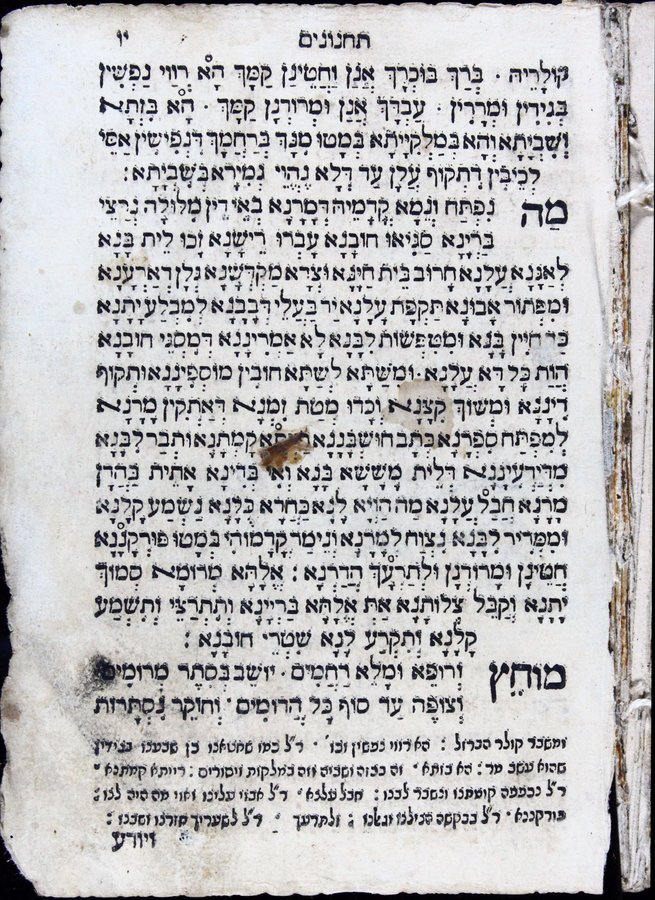 תחנונים יו
קוֹלָרֵיהּ · בְּרַךְ בּוּכְרָךְ אֲנַן וַחֲטֵינַן קַמָּךְ הָא רְווּי נַפְשִׁין
בְּגִידִין וּמְרָרִין · עַבְדָךְ אֲנַן וּמְרוּדְנָן קַמָּךְ · הָא בִּזְתָא
וְשִׁבְיָתָא וְהָא בְּמַלְקִיֵיתָא בְּמָטוּ מִנָּךְ בְּרַחֲמָךְ דִּנְפִישִׁין אַסֵּי
לְכֵיבִין דִּתְקוֹף עֲלָן עַד דְּלָא נֶהֱוֵי גְמִירָא בְּשִׁבְיָתָא :
מַה נִפְתַּח וְנֵמָא קֳדָמֵיהּ דְּמָרָנָא בְּאֵידֵין מִלּוּלָה נְרַצֵּי
בְּרֵינָא סַגִּיאוּ חוֹבָנָא עָבְרוּ רֵישָׁנָא זָכוּ לֵית בָּנָא
לְאַגָּנָא עֲלָנָא חָרוּב בֵּית חַיָּנָא וְצָדָא מַקְדְּשָׁנָא גְּלָן דְּאַרְעָנָא
וּמִפְּתוּר אֲבוּנָא תִּקְפַת עֲלָנָא יַד בַּעֲלֵי דְבָבָנָא לְמִבְלַע יָתָנָא
כַּד חַיִּין בָּנָא וּמִטַּפְּשׁוּת לִבָּנָא לָא אָמְרִינָנָא דְּמִסְּגֵי חוֹבָנָא
הֲוַת כָּל דָּא עֲלָנָא · וּמִשַּׁתָּא לְשַׁתָּא חוֹבִין מוֹסְפִינָנָא וּתְקוֹף
דִּינָנָא וּמָשׁוּךְ קִצָּנָא וְכַדּוּ מְטַת זִמְנָא דְּאַתְקִין מָרָנָא
לְמִפְתַּח סִפְרָנָא בִּכְתָב חוּשְׁבָּנָנָא קָמָתָנָא וּתְבַר לִבָּנָא
דְּלֵית מְשָׁשָׁא בָּנָא וְאִי בְּדִינָא אָתֵית בַּהֲדָן
מָרָנָא חֲבָל עֲלָנָא מַה הֲוְיָא לָנָא בַּחֲדָא כֻּלָּנָא נַשְׁמַע קָלָנָא
וּמִמְּרִיר לִבָּנָא נִצְוַח לְמָרָנָא וְנֵימַר קֳדָמוֹהִי בְּמָטוּ פּוּרְקָנָנָא
חֲטֵינָן וּמְרוּדְנָן וּלְתַרְעָךְ הֲדַרְנָא : אֱלָהָא מְרוֹמָא סְמוֹךְ
יָתָנָא וְקַבֵּל צְלוֹתָנָא אַתְּ אֱלָהָא בָּרְיָנָא וְתִתְרַצֵּי וְתִשְׁמַע
קָלָנָא וְתִקְרַע לָנָא שִׁטְרֵי חוֹבָנָא :
מוֹחֵץ וְרוֹפֵא וּמָלֵא רַחֲמִים · יוֹשֵׁב בְּסֵתֶר מְרוֹמִים
וְצוֹפֶה עַד סוֹף כָּל הֲדוֹמִים · וְחוֹקֵר נִסְתָּרוֹת
ומשבר קולר הברזל : הא רווי נפשין וכו׳ · ר״ל כמו שחטאנו כן שבענו בגידין
שהוא עשב מר : הא בזתא · זה בבזה ושביה וזה במלקות ויסורים : קמתנא ·
ר״ל נכפפה קומתנו ונשבר לבנו : חבל עלנא · ר״ל אבוי עלינו ואוי מה היה לנו :
פורקננא · ר״ל בבקשה מצילנו וגואלנו : ולתרעך · ר״ל לשעריך חזרנו ושבנו :
ויודע